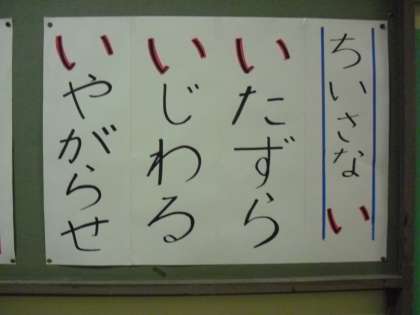 ちいさな い
いたずら
いじわる
いやがらせ